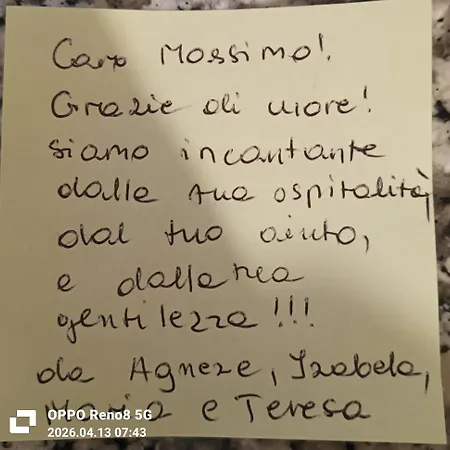 Caro Massimo!
Grazie di cuore!
siamo incantante
dalla tua ospitalità,
dal tuo aiuto,
e dalla tua
gentilezza!!!
da Agnese, Izabela,
Maria e Teresa
OPPO Reno8 5G
2026.04.13 07:43